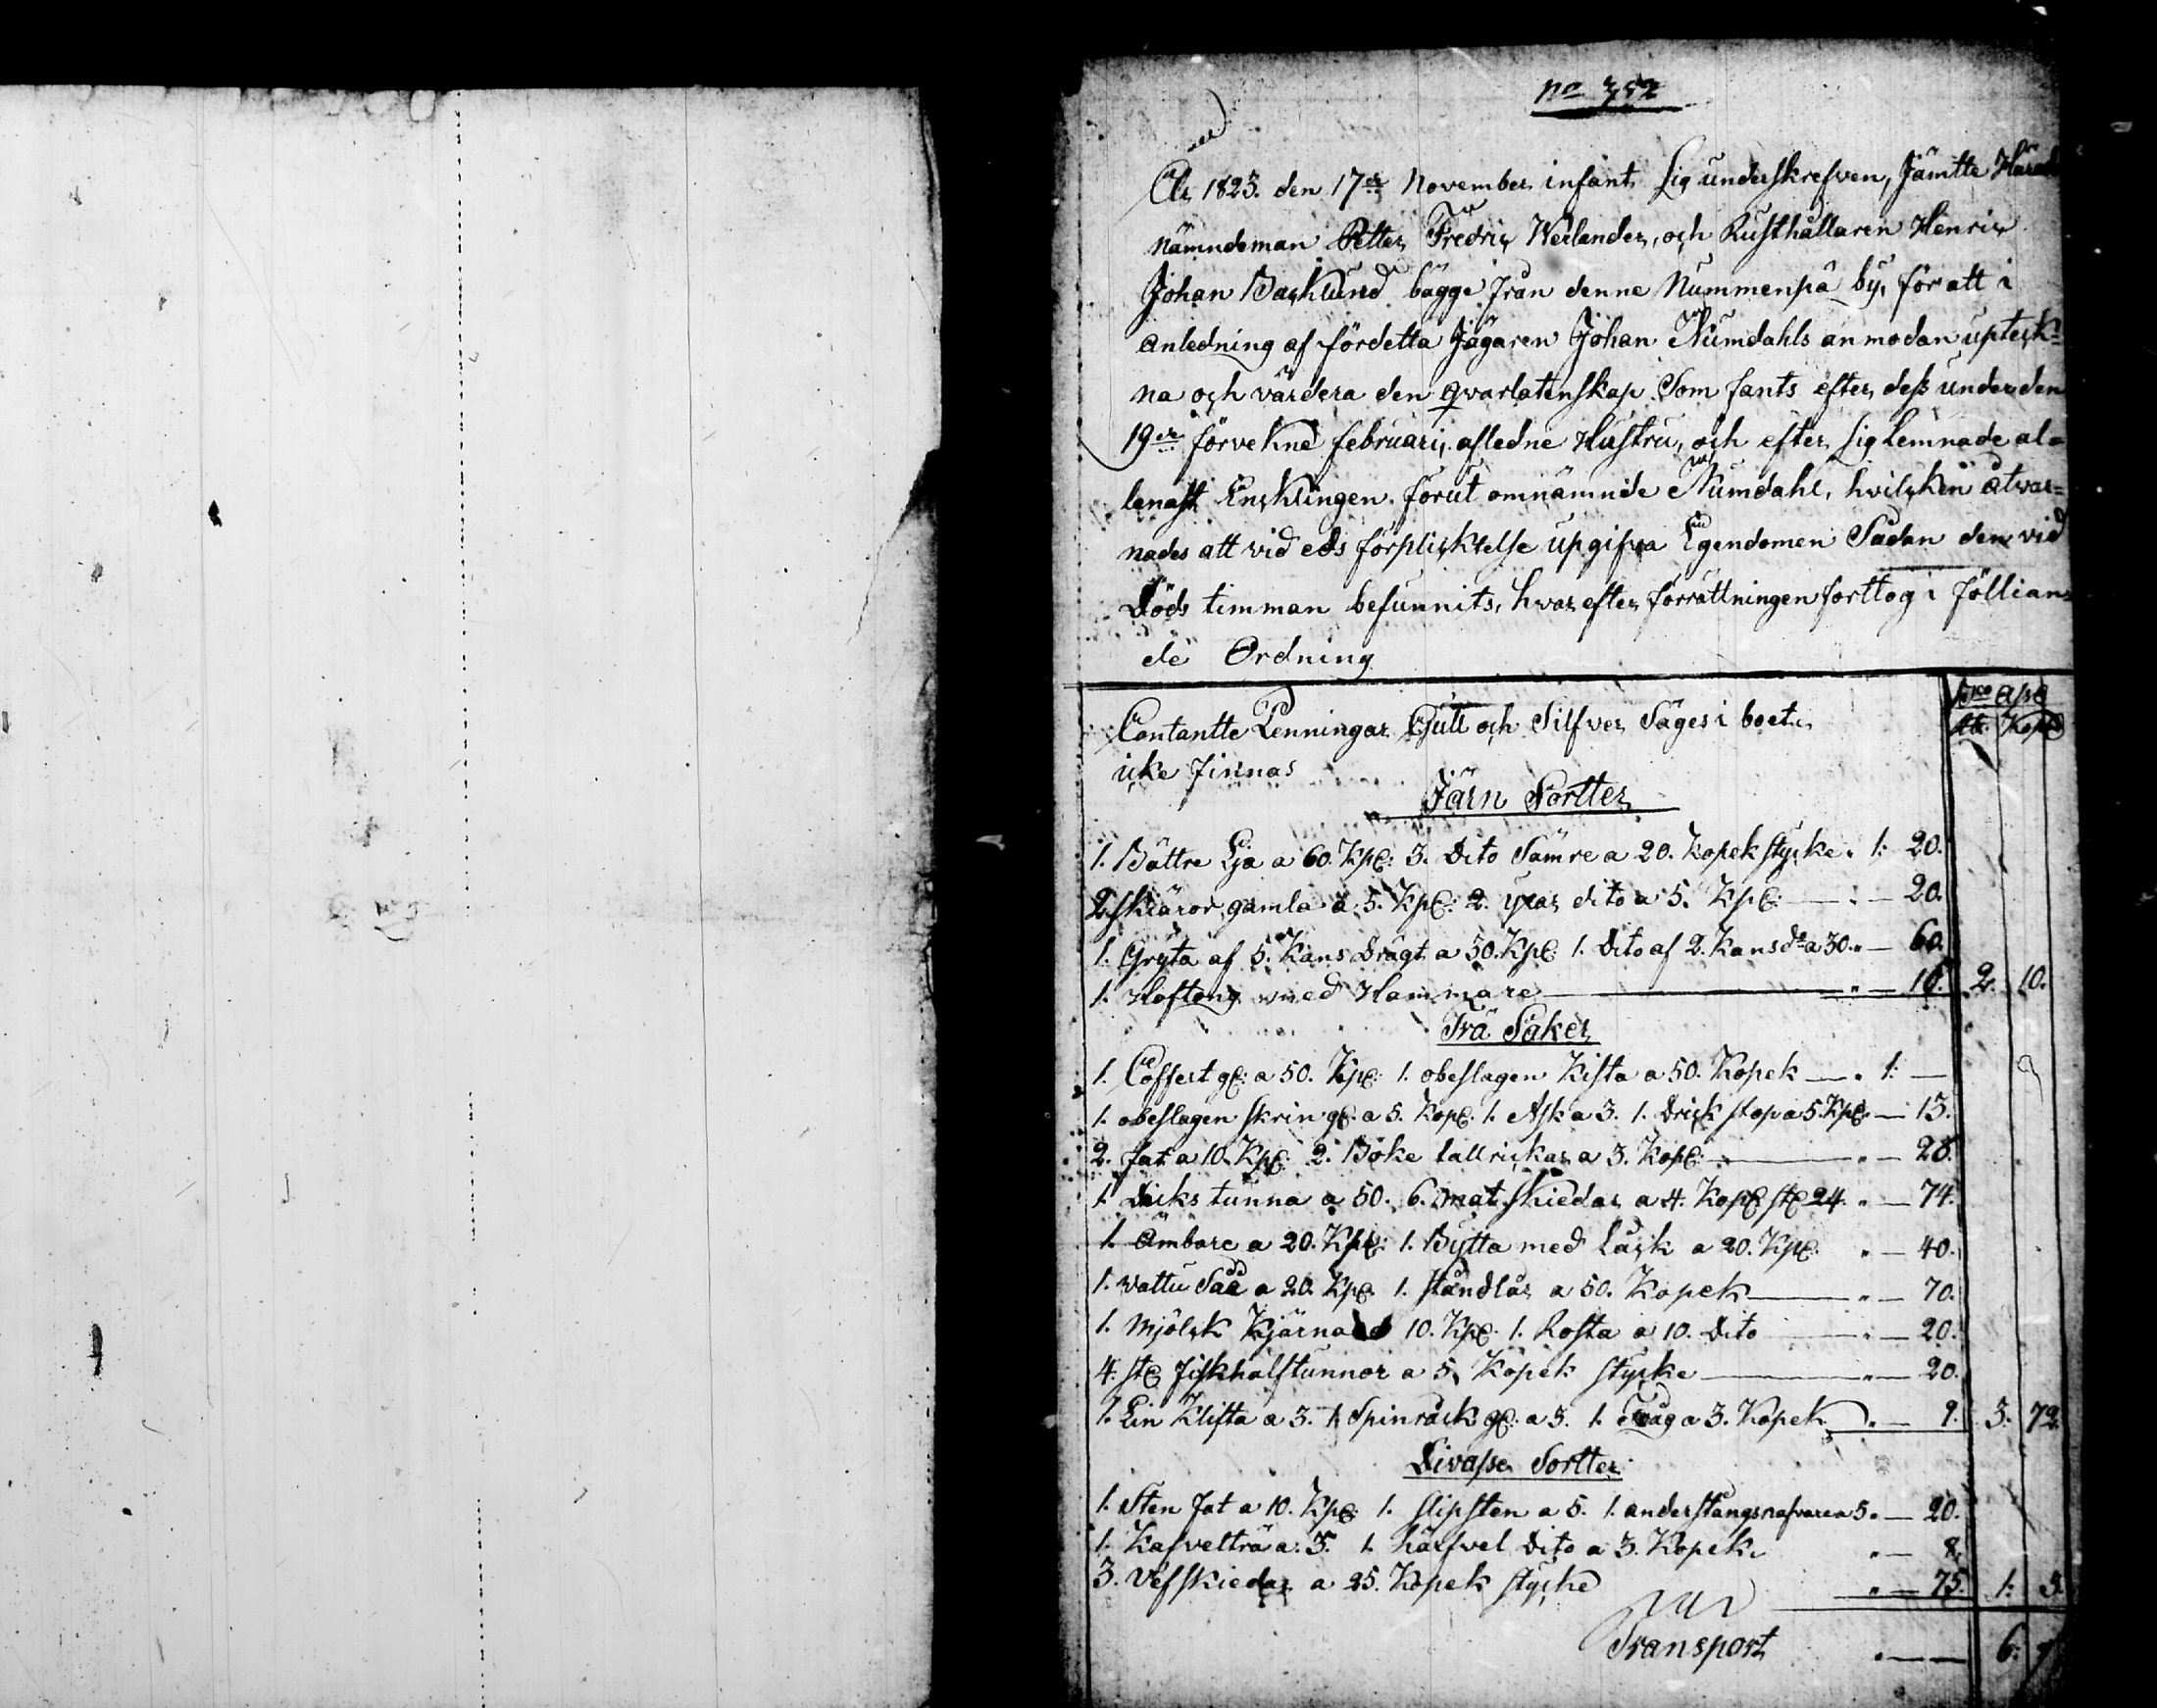 No 352
År 1823. den 17de November infant Sig underskrefven, Jämtte Härads
nämndeman Petter Fredric Werlander, och Rusthållaren Henric
Johan Backlund bägge från denne Nummenpä by, för att i
anledning af fördetta Jägaren Johan Numdahls anmodan upteck-
na och värdera den qvarlatenskap Som fants efter dess under den
19de förvekne februari, afledne Hustru, och efter Sig Lemnade al-
lenast Encklingen förut omnämnde Numdahl, hvilcken åtvar-
nades att vid eds förplicktelse upgifva Egendomen Sådan den vid
Döds timman befunnits, hvarefter förrättningen forttog i följian-
de Ordning
Bco ass
Rb. Kopk
Contantte Penningar Gull och Silfver Säges i boet
icke finnas
Järn Sortter
1. Bättre Lja a 60. Kpk: 3. Dito Sämre a 20. kopek stycke " 1: 20.
2. skiäror gamla a 5. Kpk: 2. yxar dito a 5. Kpk: — " — 20.
1. Gryta af 5. Kans Drägt a 30. Kpk 1. Dito af 2. Kans do a 30. " — 60.
1. Hoftong med Hammare — " — 10. 2. 10.
Trä Saker
1. Coffert gl: a 50. Kpk: 1. obeslagen Kista a 50. Kopek — " 1: —
1. obeslagen skrin gl: a 5. Kopk 1. Ask a 3. 1. Drick stop a 5. Kpk — 13.
2. fat a 10. Kpk: 2. Böke tallrickar a 3. Kopk: — " — 26.
1. Dricks tunna a 50. 6. mat skiedar a 4. Kopk stk 24. " — 74.
1. Ämbare a 20. Kpk: 1. Bytta med Låck a 20. Kpk. " — 40.
1. Wattu Saa a 20. Kpk. 1. ståndlår a 50. Kopek — " — 70.
1. Mjölck Kjärna a 10. Kpk: 1. Rosta a 10. Dito — " — 20.
4. stk fiskhalftunnor a 5. Kopek stycke — " — 20.
1. Lin Klifta a 3. 1. Spinråck gl: a 3. 1. Tråg a 3. Kopek " — 9. 3: 72.
Divasse Sortter
1. Sten fat a 10. Kpk 1. slipsten a 5. 1. anderstångsnafvare a 5. " — 20.
1. Kafvelträ a. 5. 1. härfvel Dito a 3. Kopek " — 8.
3. Vefskiedar a 25. Kopek stycke " — 75. 1: 3.
Transport " — 6: